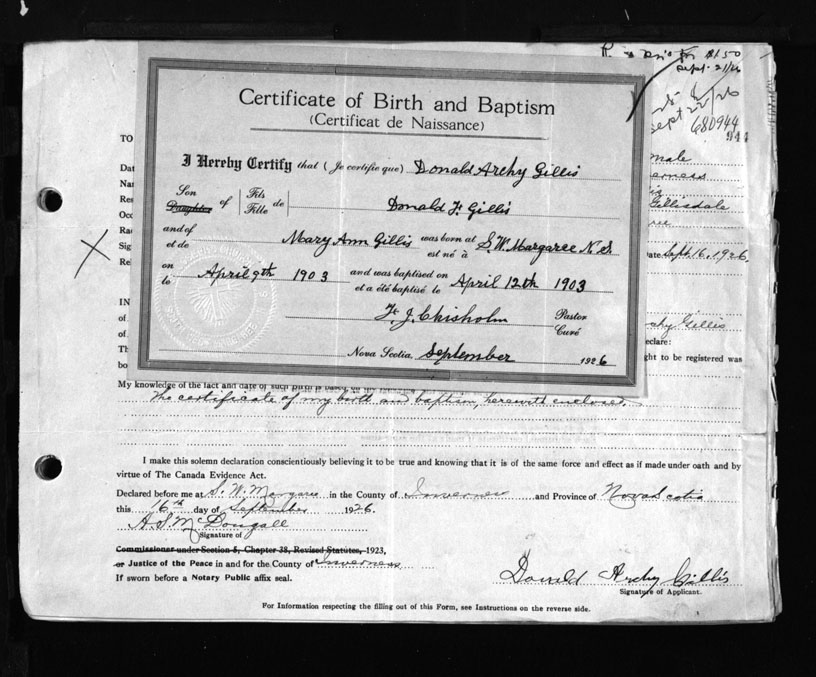 for $1.50
Sept. 21/26
Sept 22/26
680944
Certificate of Birth and Baptism
(Certificat de Naissance)
TO
I Hereby Certify that (Je certifie que) Donald Archy Gillis
male
Dat
Nar
Son Daughter of Fils Fille de Donald F. Gillis
Gillisdale
Res
Occ
Rac
and of et de Mary Ann Gillis was born at est né à S. W. Margaree N.S.
Sig
Date Sept. 16, 1926.
Re
on le April 9th 1903 and was baptised on et a été baptisé le April 12th 1903
IN
of
of
F. J. Chisholm Pastor Curé
Archy Gillis
declare:
Th
Nova Scotia, September 1926
ght to be registered was
bo
My knowledge of the fact and date of such birth is based on
The certificate of my birth and baptism, herewith enclosed.
I make this solemn declaration conscientiously believing it to be true and knowing that it is of the same force and effect as if made under oath and by
virtue of The Canada Evidence Act.
Declared before me at S. W. Margaree in the County of Inverness and Province of Nova Scotia
this 16th day of September 1926.
A. S. McDougall
Signature of
Commissioner under Section 5, Chapter 38, Revised Statutes, 1923,
or Justice of the Peace in and for the County of Inverness
If sworn before a Notary Public affix seal.
Donald Archy Gillis
Signature of Applicant.
For Information respecting the filling out of this Form, see Instructions on the reverse side.